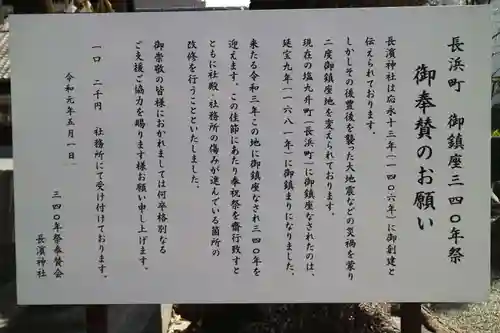 長浜町　御鎮座三四〇年祭
御奉賛のお願い
長濱神社は応永十三年（一四〇六年）に御創建と
伝えられております。
しかしその後豊後を襲った大地震などの災禍を蒙り
二度御鎮座地を変えられております。
現在の塩九升町（長浜町）に御鎮座なされたのは、
延宝九年（一六八一年）に御鎮まりになりました。
来たる令和三年この地に御鎮座なされ三四〇年を
迎えます。この佳節にあたり奉祝祭を齋行致すと
ともに社殿・社務所の傷みが進んでいる箇所の
改修を行うことといたしました。
御崇敬の皆様におかれましては何卒格別なる
ご支援ご協力を賜ります様お願い申し上げます。
一口　二千円　社務所にて受け付けております。
令和元年五月一日
三四〇年祭奉賛会
長濱神社